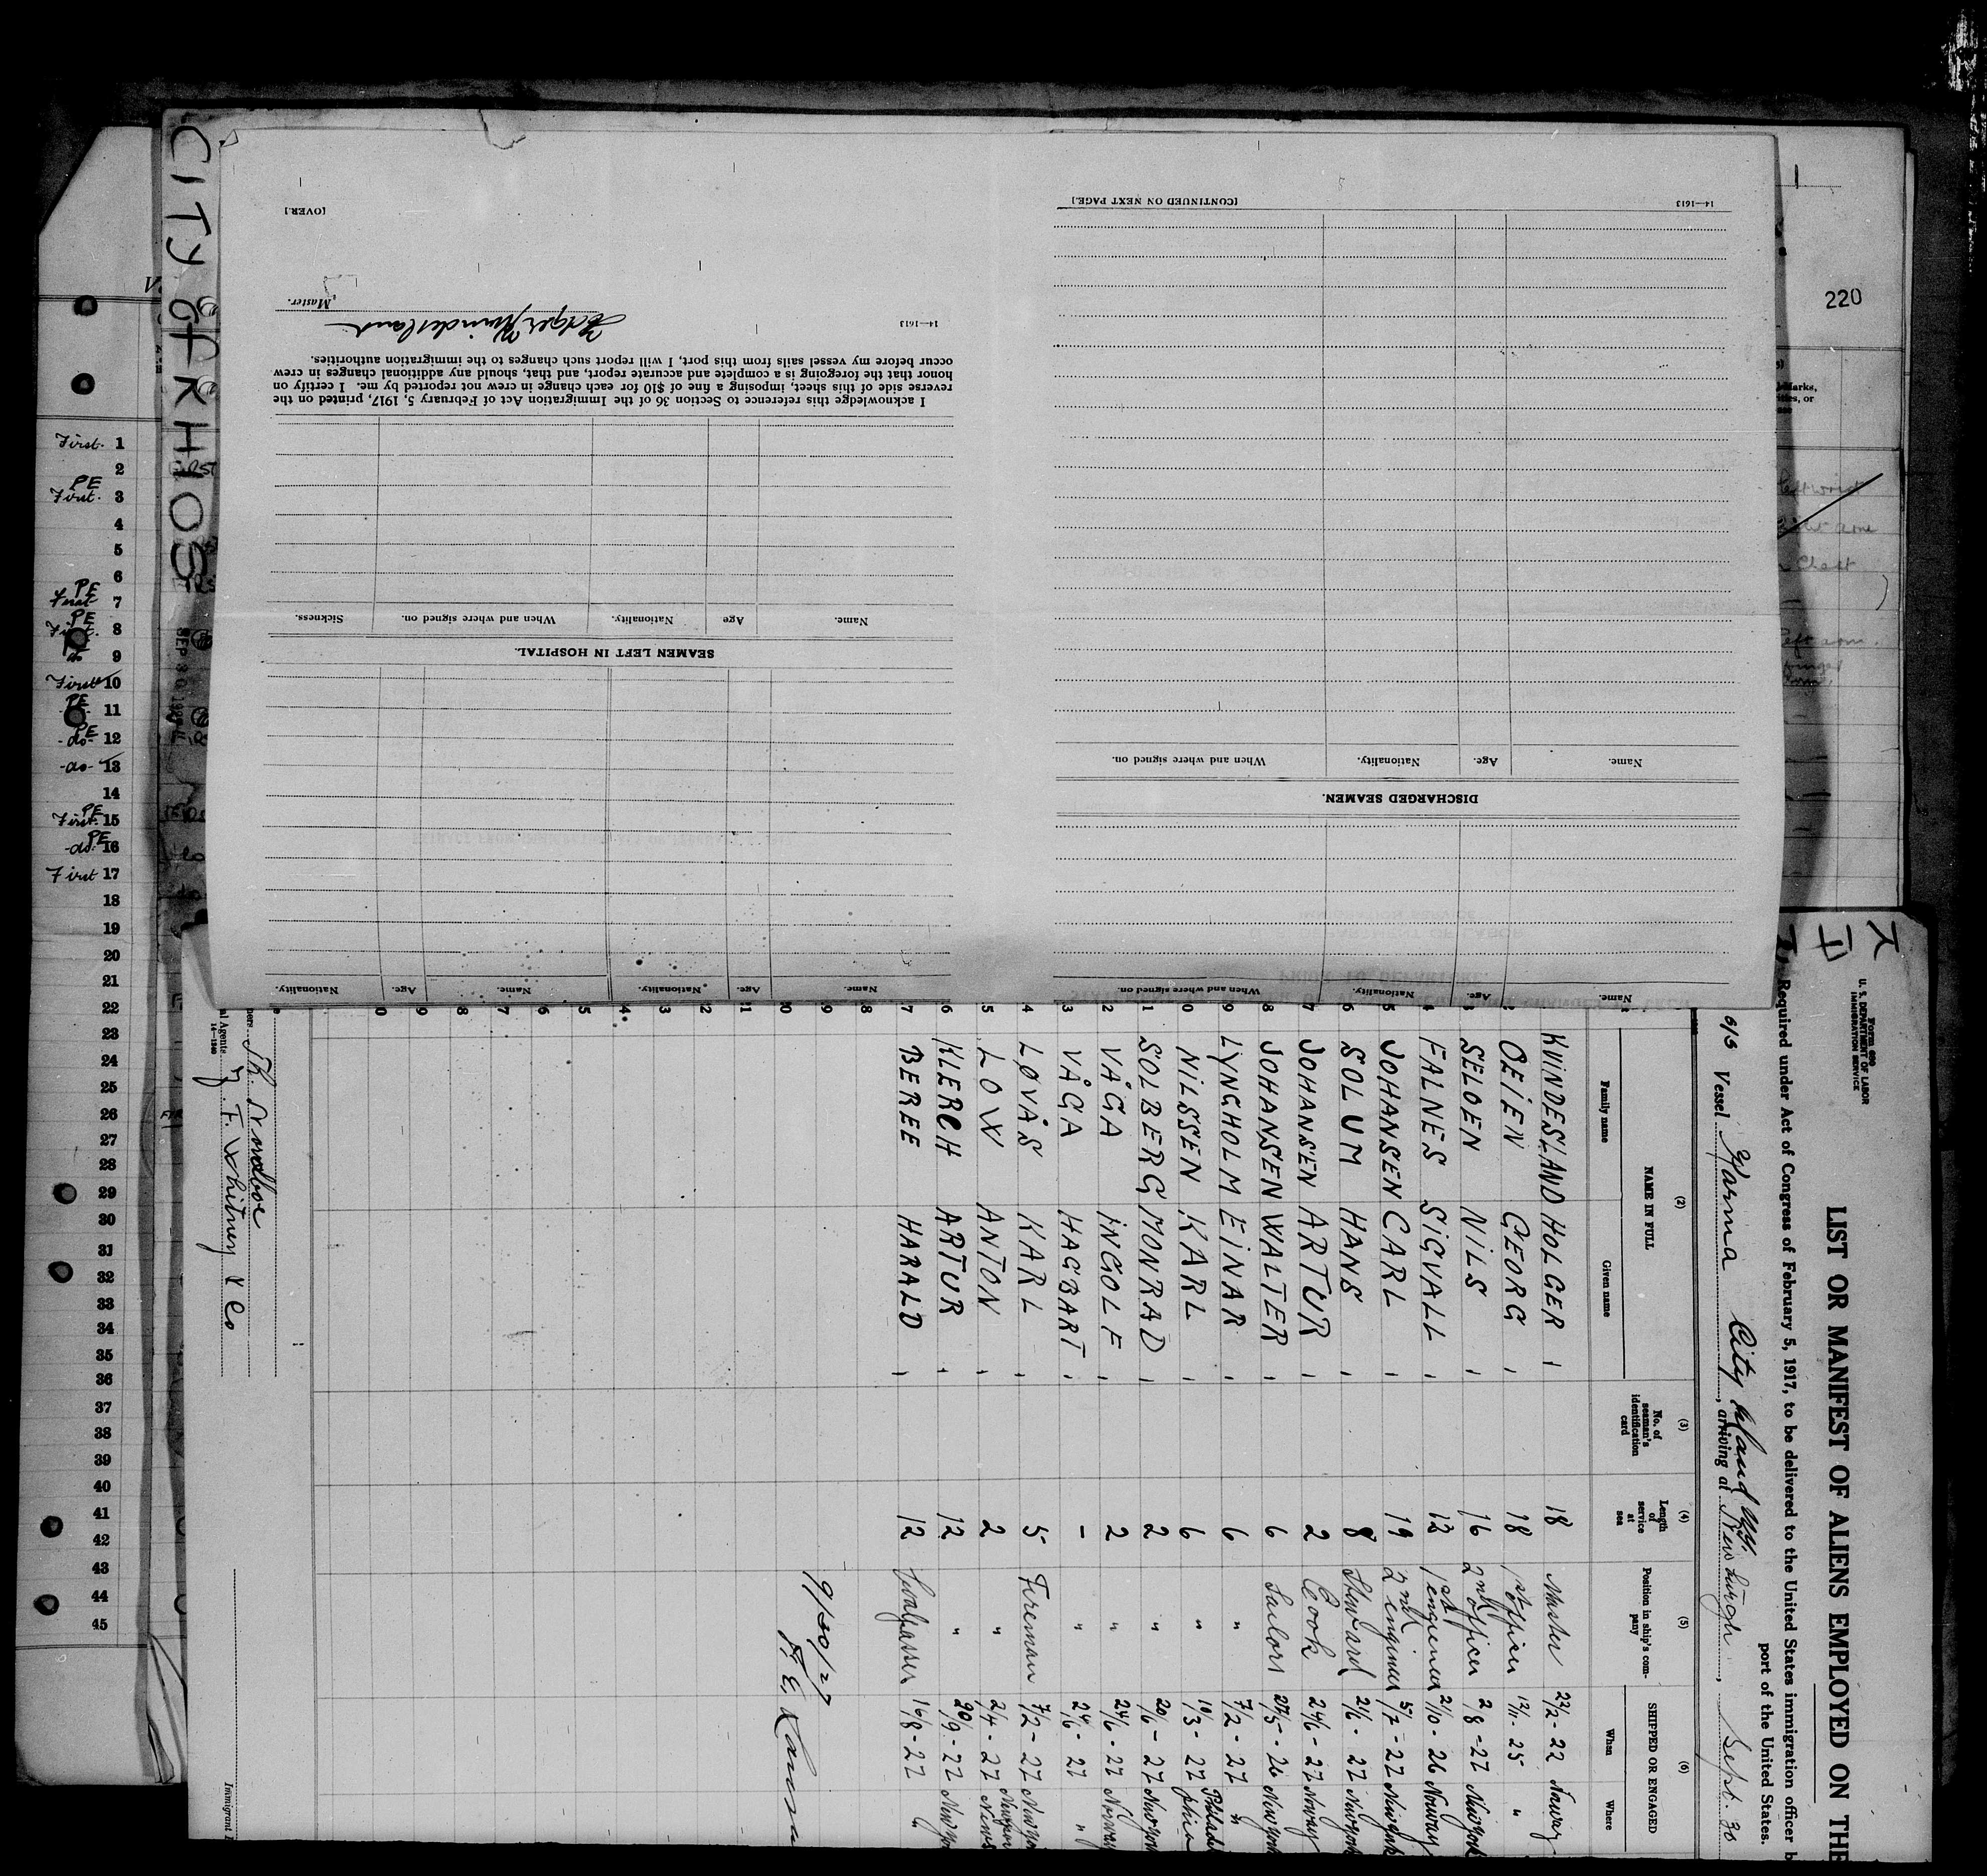 220
CITY OF KHIOS
First. 1
2
PE
First. 3
4
5
6
PE
First 7
PE
8
do 9
First 10
PE
11
PE
-do- 12
-do- 13
14
PE
First. 15
PE
-do- 16
First 17
18
19
20
21
22
23
24
25
26
27
28
29
30
31
32
33
34
35
36
37
38
39
40
41
42
43
44
45
left wrist
Chest
left arm.
finger
Name. Age. Nationality. When and where signed on.
DISCHARGED SEAMEN.
Name. Age. Nationality. When and where signed on.
14—1613 [CONTINUED ON NEXT PAGE.]
Name. Age. Nationality. Name. Age. Nationality.
SEAMEN LEFT IN HOSPITAL.
Name. Age Nationality. When and where signed on. Sickness.
I acknowledge this reference to Section 36 of the Immigration Act of February 5, 1917, printed on the
reverse side of this sheet, imposing a fine of $10 for each change in crew not reported by me. I certify on
honor that the foregoing is a complete and accurate report, and that, should any additional changes in crew
occur before my vessel sails from this port, I will report such changes to the immigration authorities.
14—1613
Holger Kvindesland
, Master.
[OVER.]
Form 689
U. S. DEPARTMENT OF LABOR
IMMIGRATION SERVICE
LIST OR MANIFEST OF ALIENS EMPLOYED ON THE
Required under Act of Congress of February 5, 1917, to be delivered to the United States immigration officer b
port of the United States.
Vessel Yarma City Island NY. , arriving at Newburgh , Sept. 30
(2) (3) (4) (5) (6)
NAME IN FULL No. of seaman's identification card Length of service at sea Position in ship's company SHIPPED OR ENGAGED
Family name Given name When Where
KVINDESLAND HOLGER 18 Master 22/2-22 Norway
OEIEN GEORG 18 1st officer 12/11-25 "
SELOEN NILS 16 2nd officer 2/8-27 New York
FALNES SIGVALL 13 1st engineer 2/10-26 Norway
JOHANSEN CARL 19 2nd engineer 5/7-27 New York
SOLUM HANS 8 Steward 2/6-27 New York
JOHANSEN ARTUR 2 Cook 24/6-27 Norway
JOHANSEN WALTER 6 Sailors 27/5-26 New York
LYNGHOLM EINAR 6 " 7/2-27 "
NILSSEN KARL 6 " 19/3-27 Philadelphia
SOLBERG MONRAD 2 " 20/6-27 New York
VÅGA INGOLF 2 " 24/6-27 Norway
VÅGA HAGBART - " 24/6-27 "
LØVÅS KARL 5 Fireman 7/2-27 New York
LOW ANTON 2 " 2/4-27 Newport News
KLERCH ARTUR 12 " 20/9-27 New York
BEREE HARALD 12 16/8-27 "
9/30/27
al Agents J. F. Whitney & Co
14—1240
Immigrant I